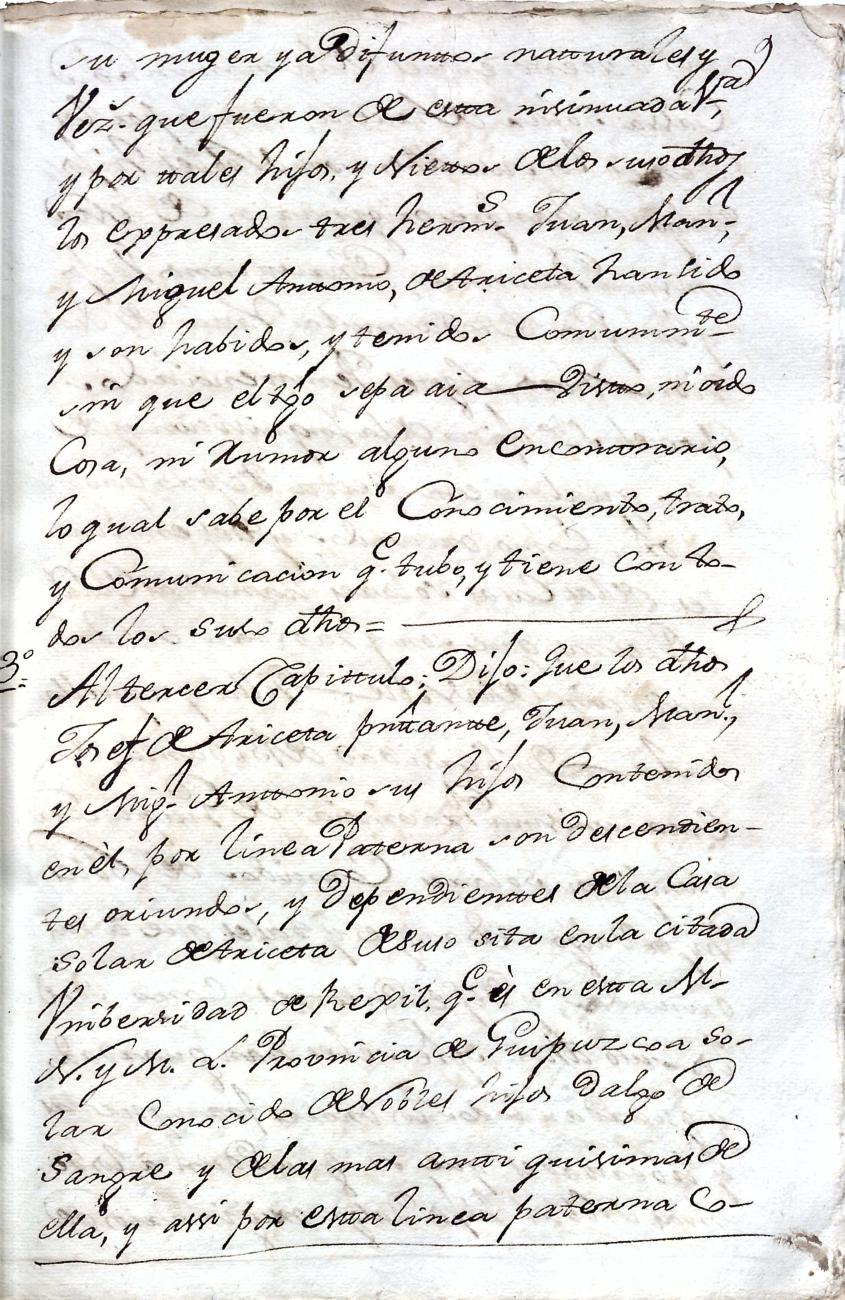 su muger ya Difunttos natturales y
Vezs. que fueron de estta insinuada Va,
y por ttales hijos, y Niettos de los suso dhos
los expresados tres hermos. Juan, Manl,
y Miguel Anttonio, de Ariceta han sido
y son habidos, y tenidos Comunmte
sin que el tgo sepa aia Distto, ni oido
Cosa, ni Rumor alguno en conttrario,
lo qual sabe por el Conocimiento, trato,
y Comunicacion qe. tubo, y tiene con to-
dos los suso dhos=
3o = Al tercer Capittulo: Dijo: Que los dhos
Josef de Ariceta presnttantte, Juan, Manl.,
y Migl. Anttonio sus hijos Contenidos
en èl, por linea Paterna son descendien-
tes oriundos, y Dependienttes de la Casa
Solar de Ariceta de suso sita en la citada
Vnibersidad de Rexil, qe. ès en estta M.
N. y M. L. Provincia de Guipuzcoa So-
lar Conocido de Nobles hijos dalgo de
Sangre y de las mas antti quisimas de
ella, y assi por estta linea paterna Co-